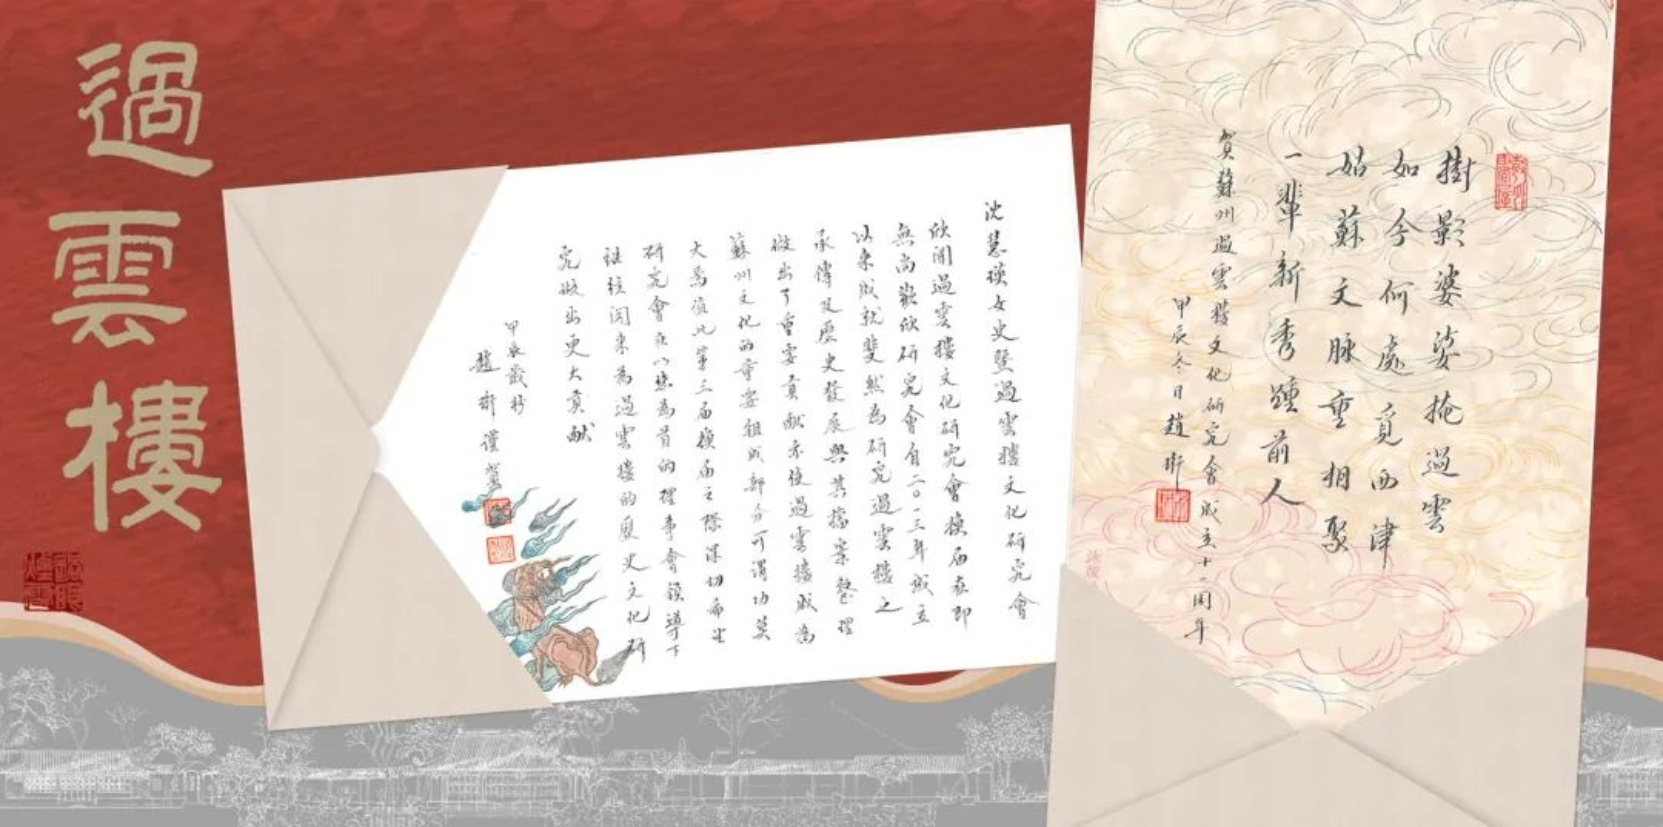 過雲樓
沈慧瑛女史暨過雲樓文化研究會
欣聞過雲樓文化研究會換屆在即
無尚歡欣研究會自二〇一三年成立
以來成就斐然為研究過雲樓之
承傳及歷史發展與其檔案整理
做出了重要貢獻亦使過雲樓成為
蘇州文化的重要組成部分可謂功莫
大焉值此第三屆換屆之際深切希望
研究會在以為首的理事會領導下
繼往開來為過雲樓的歷史文化研
究做出更大貢獻
甲辰歲杪
趙珩謹賀
樹影婆娑掩過雲
如今何處覓西津
姑蘇文脉重相聚
一輩新秀踵前人
賀蘇州過雲樓文化研究會成立十二周年
甲辰冬日趙珩